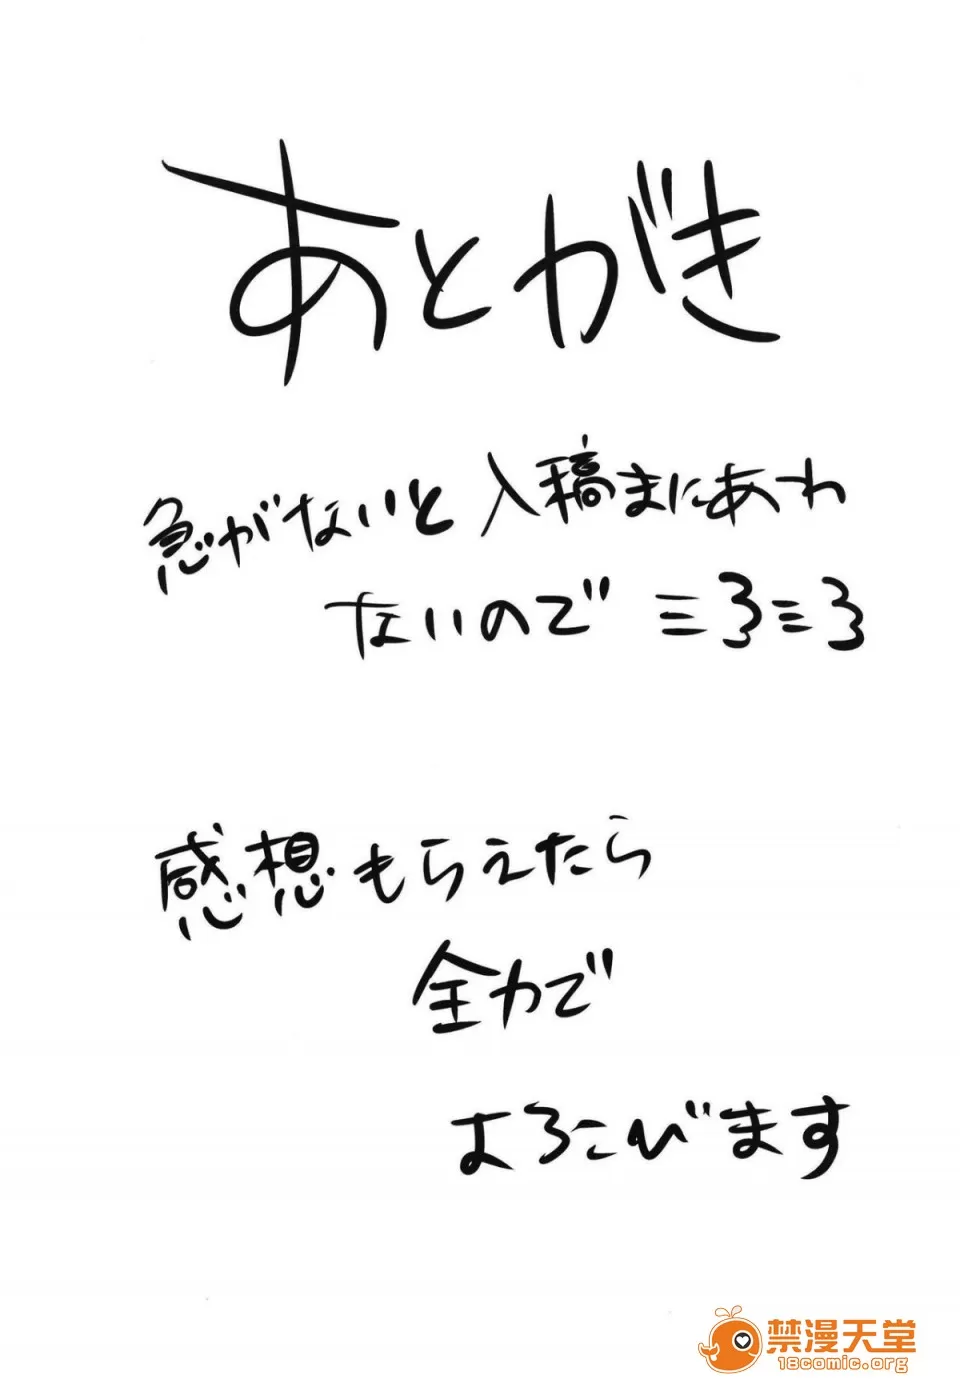 あとがき
急がないと入稿まにあわ
ないので ミ3ミ3
感想もらえたら
全力で
よろこびます
禁漫天堂
18comic.org